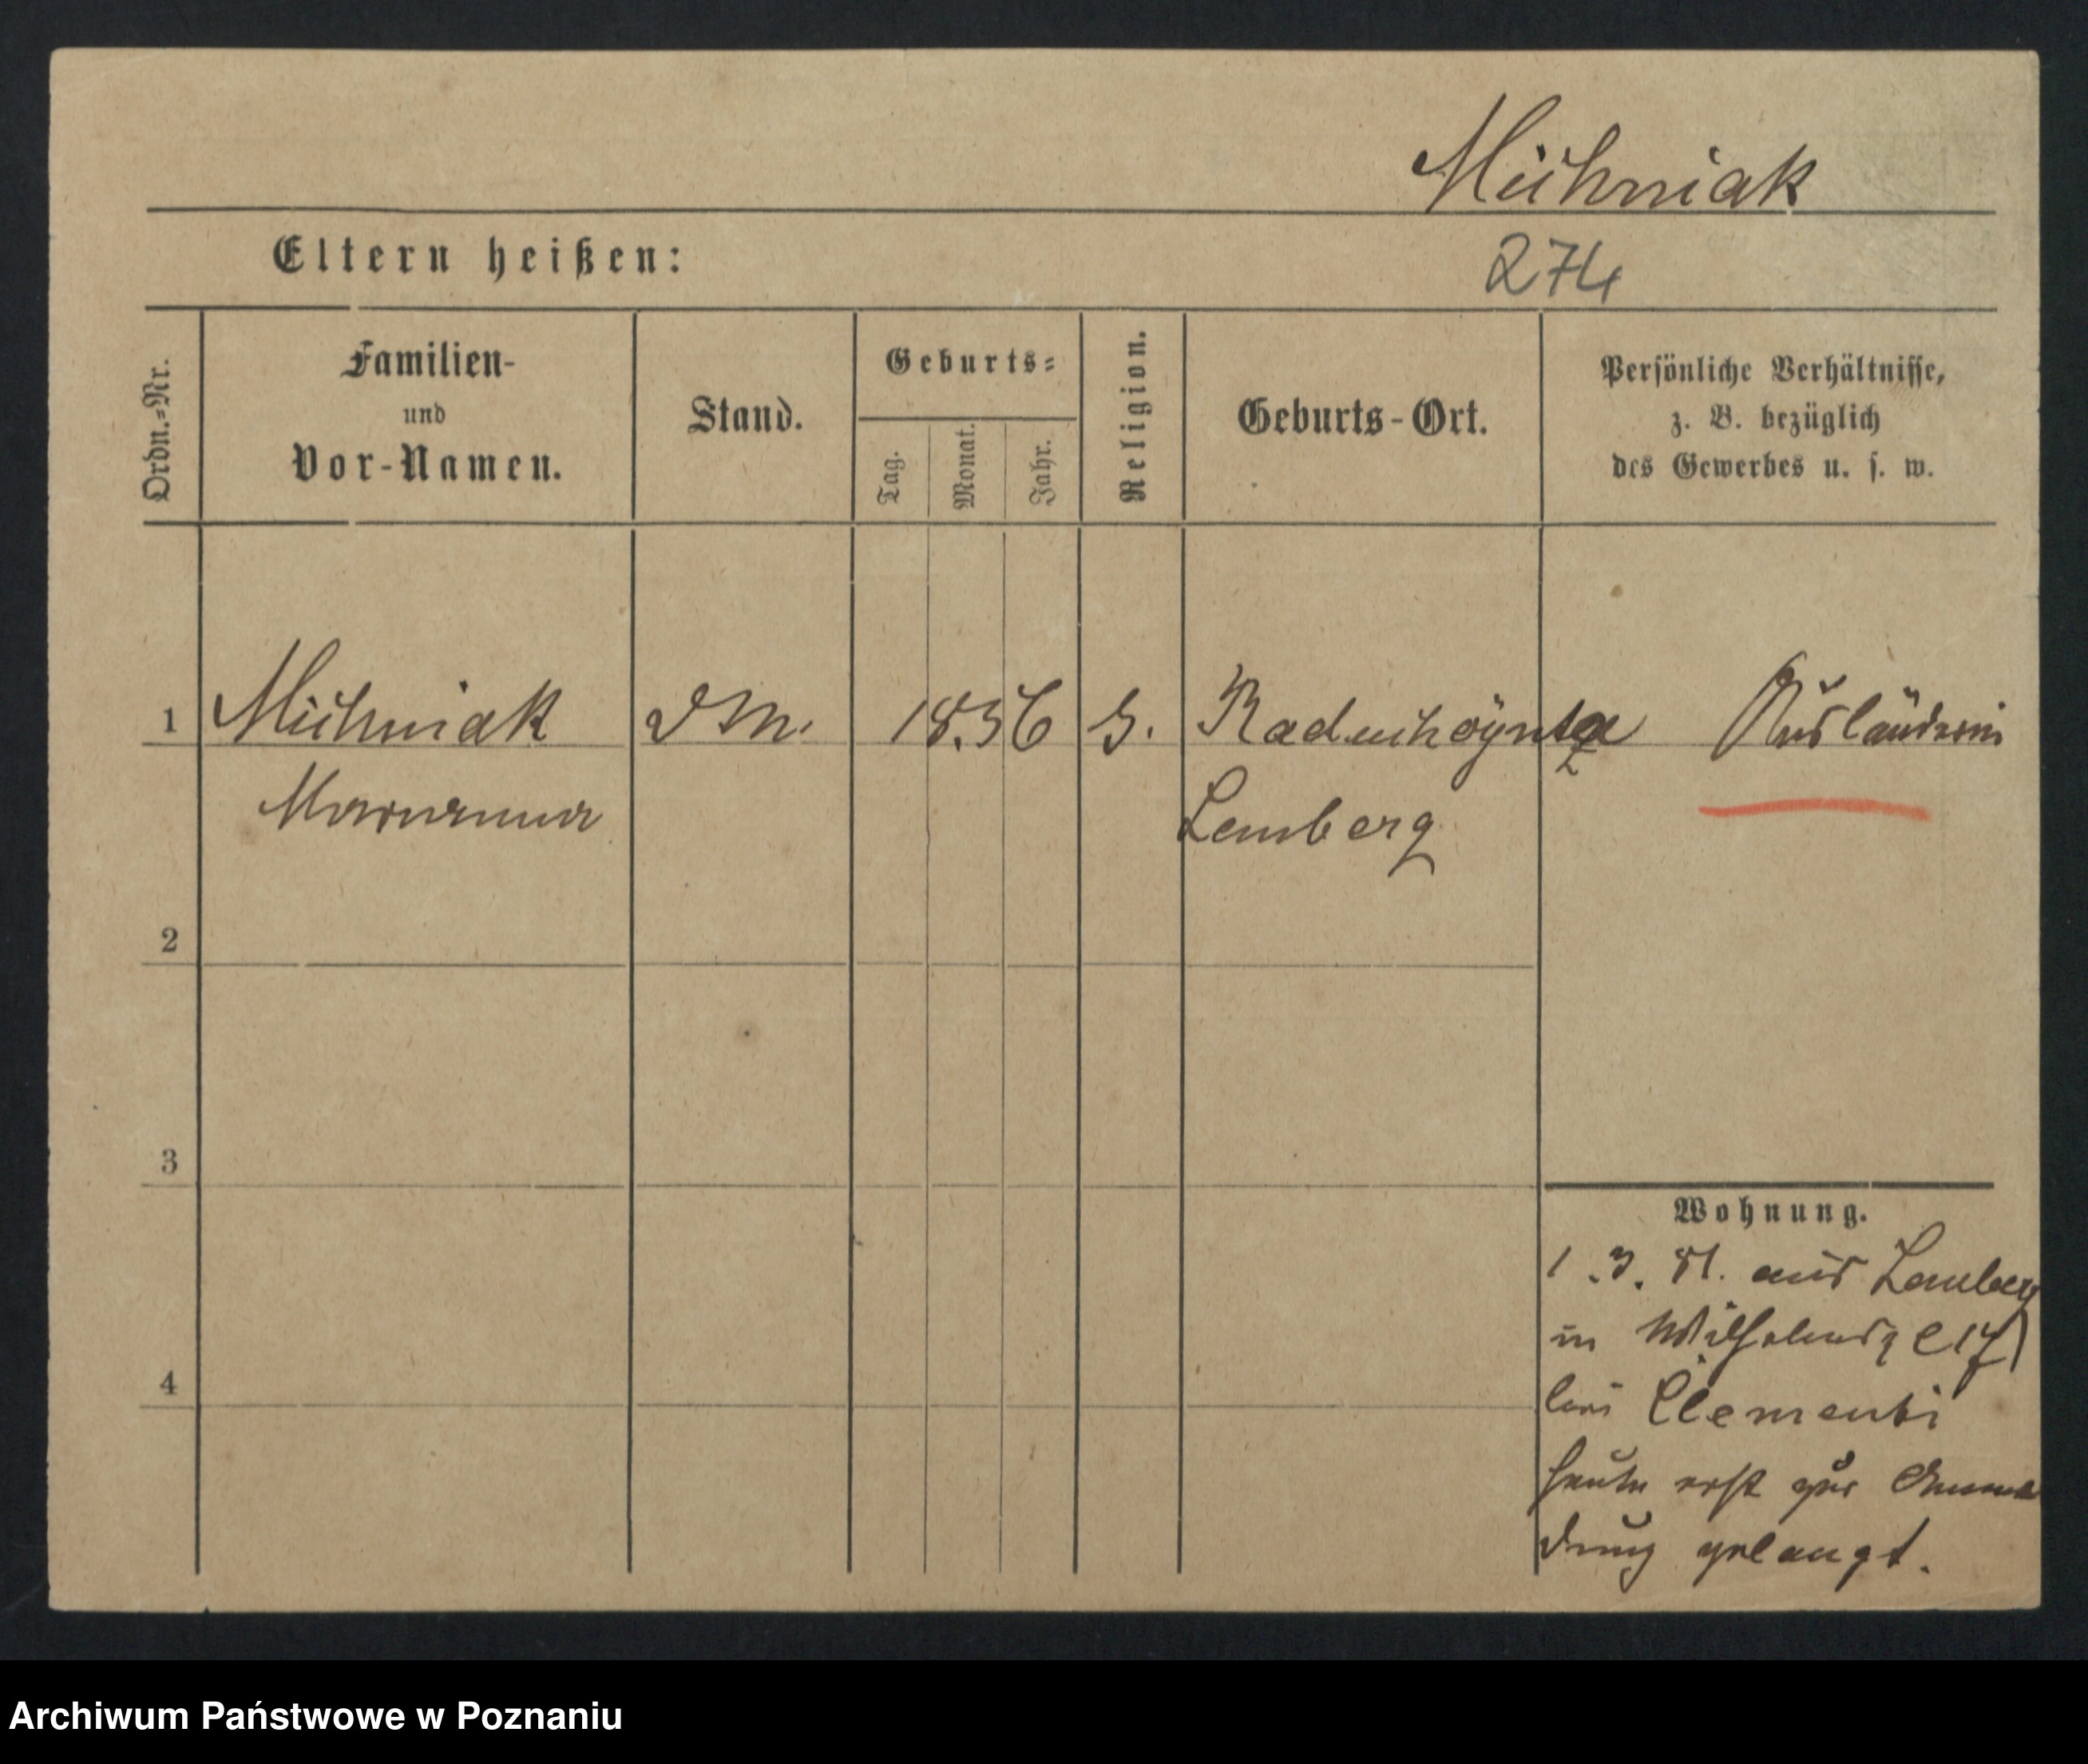 Michniak
Eltern heißen:
274
Ordn.=Nr.
Familien-
und
Vor-Namen.
Stand.
Geburts=
Tag.
Monat.
Jahr.
Religion.
Geburts-Ort.
Persönliche Verhältnisse,
z. B. bezüglich
des Gewerbes u. s. w.
1 Michniak 1856 Ausländerin
Marianna Lemberg
2
3
Wohnung.
1.3.81. aus Lemberg
in 17
4
bei Clementi
heute erst zur Anmel
dung gelangt.
Archiwum Państwowe w Poznaniu